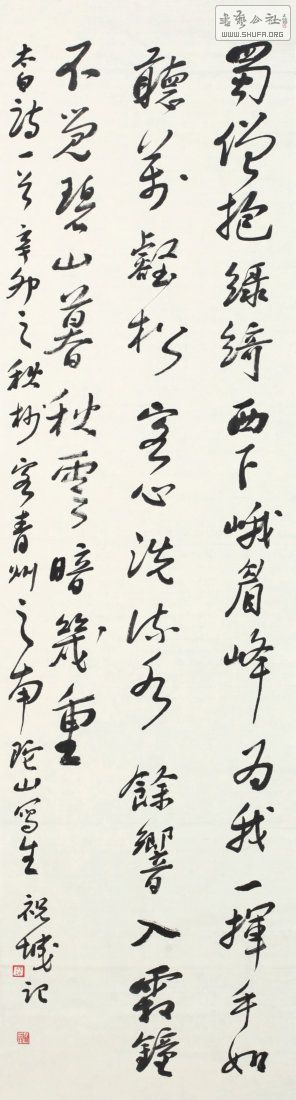 書藝公社
WWW.SHUFA.ORG
蜀僧抱綠綺西下峨眉峰为我一揮手如
聽萬壑松客心洗流水餘響入霜鐘
不覺碧山暮秋雲暗幾重
太白詩一首辛卯之秋杪客青州之南陀山寫生祝城記